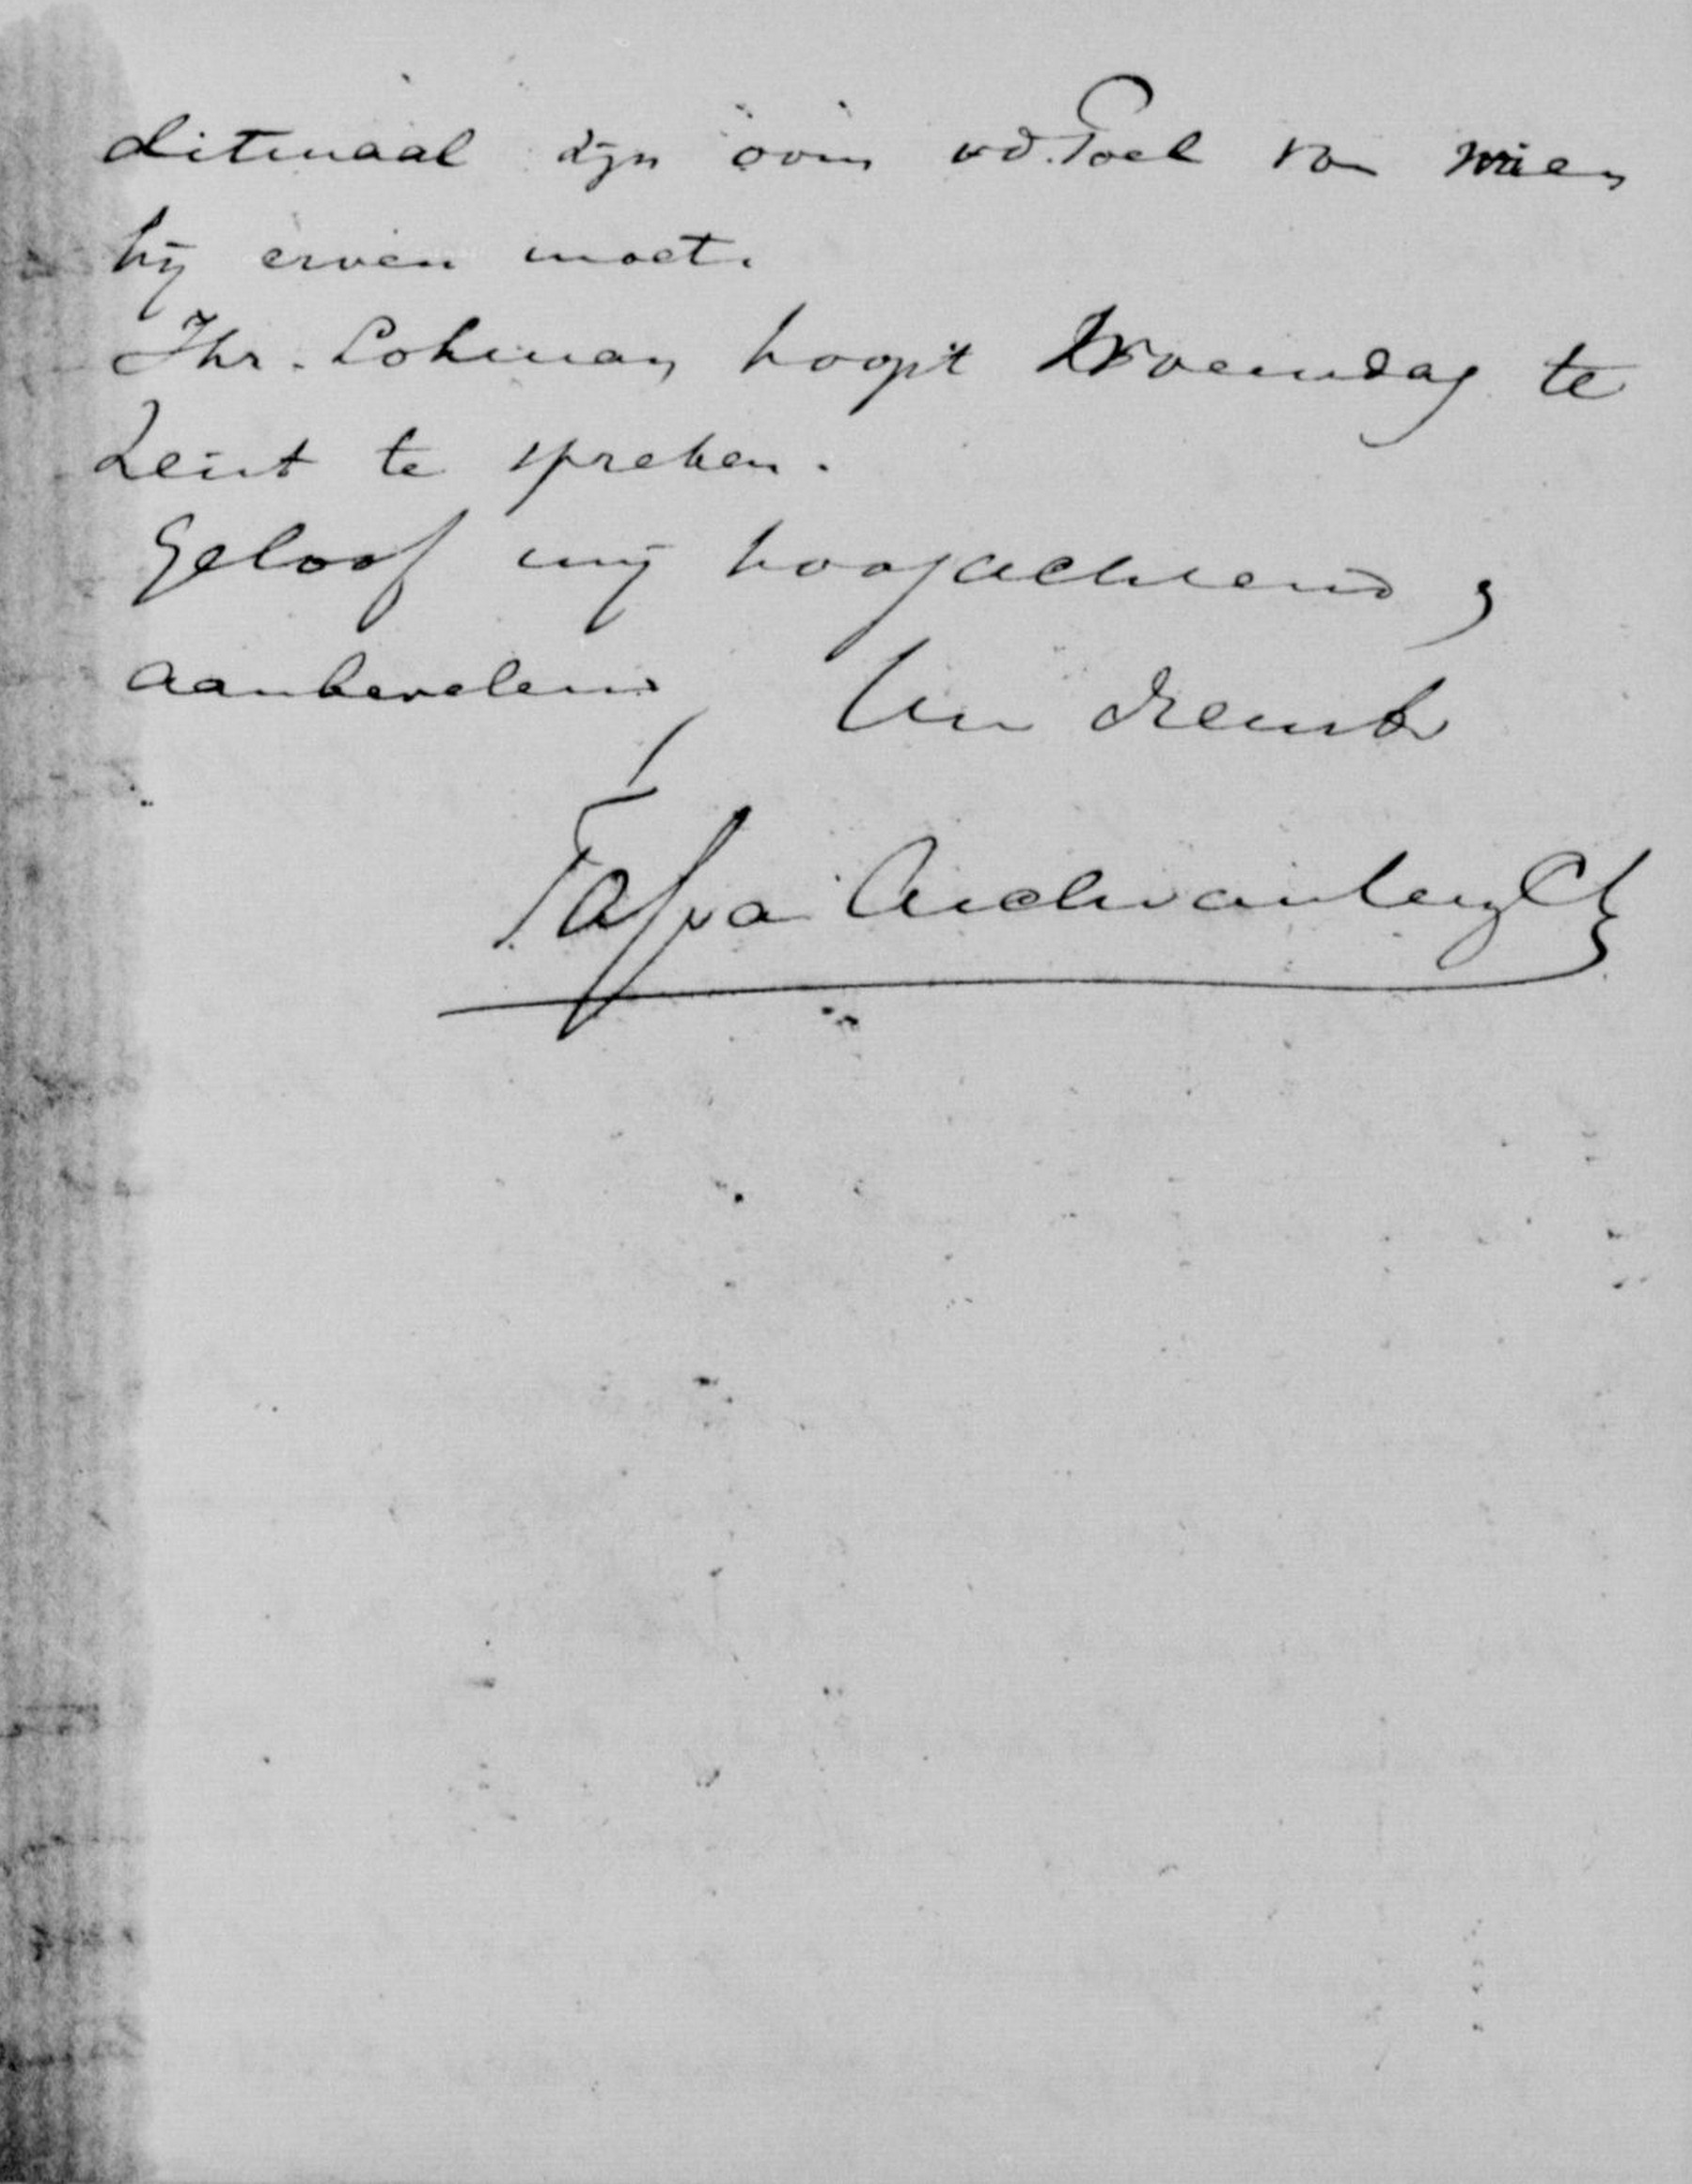 ditmaal zijn oom vd. Poel van wien
hij erven moet.
Jhr. Lohman hoopt Woensdag te
Zeist te spreken.
Geloof mij hoogachtend,
aanbevelend, Uw dienstw